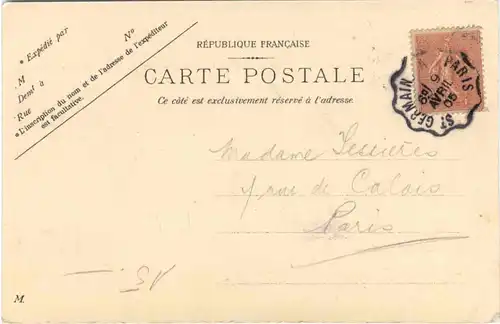 * Expédié par
N°
M
Demt à
Rue
* L'inscription du nom et de l'adresse de l'expéditeur
est facultative.
RÉPUBLIQUE FRANÇAISE
CARTE POSTALE
Ce côté est exclusivement réservé à l'adresse.
PARIS
AVRIL
05
ST GERMAIN
Madame
rue de Calais
Paris
M.